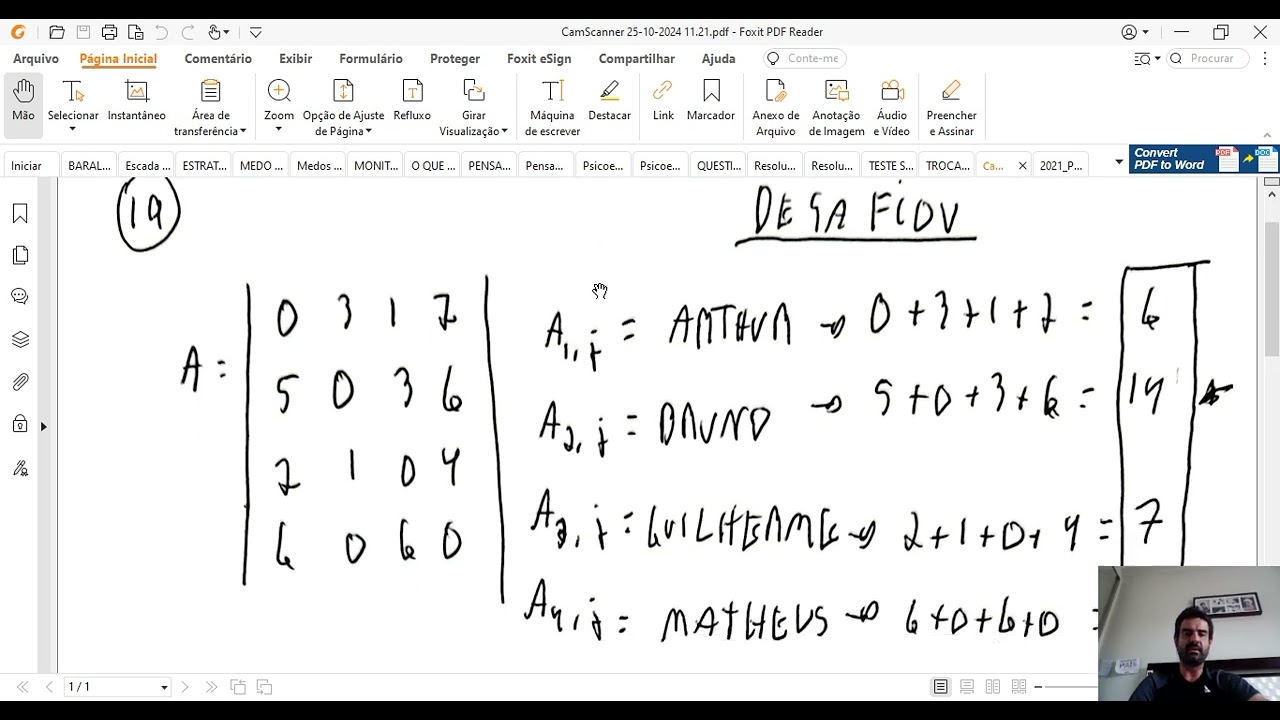 CamScanner 25-10-2024 11.21.pdf - Foxit PDF Reader
Arquivo Página Inicial Comentário Exibir Formulário Proteger Foxit eSign Compartilhar Ajuda Conte-me Procurar
Mão Selecionar Instantâneo Área de transferência Zoom Opção de Ajuste de Página Refluxo Girar Visualização Máquina de escrever Destacar Link Marcador Anexo de Arquivo Anotação de Imagem Áudio e Vídeo Preencher e Assinar
Iniciar BARAL... Escada ... ESTRAT... MEDO ... Medos ... MONIT... O QUE ... PENSA... Pensa... Psicoe... Psicoe... QUESTI... Resolu... Resolu... TESTE S... TROCA... Ca... 2021_P...
Convert PDF to Word
PDF DOC
19 DESAFIOU
0 3 1 2 A1,j = ARTHUR → 0+3+1+2 = 6
A = 5 0 3 6 A2,j = BRUNO → 5+0+3+6 = 14
2 1 0 4 A3,j = GUILHERME → 2+1+0+4 = 7
6 0 6 0 A4,j = MATHEUS → 6+0+6+0 =
1 / 1